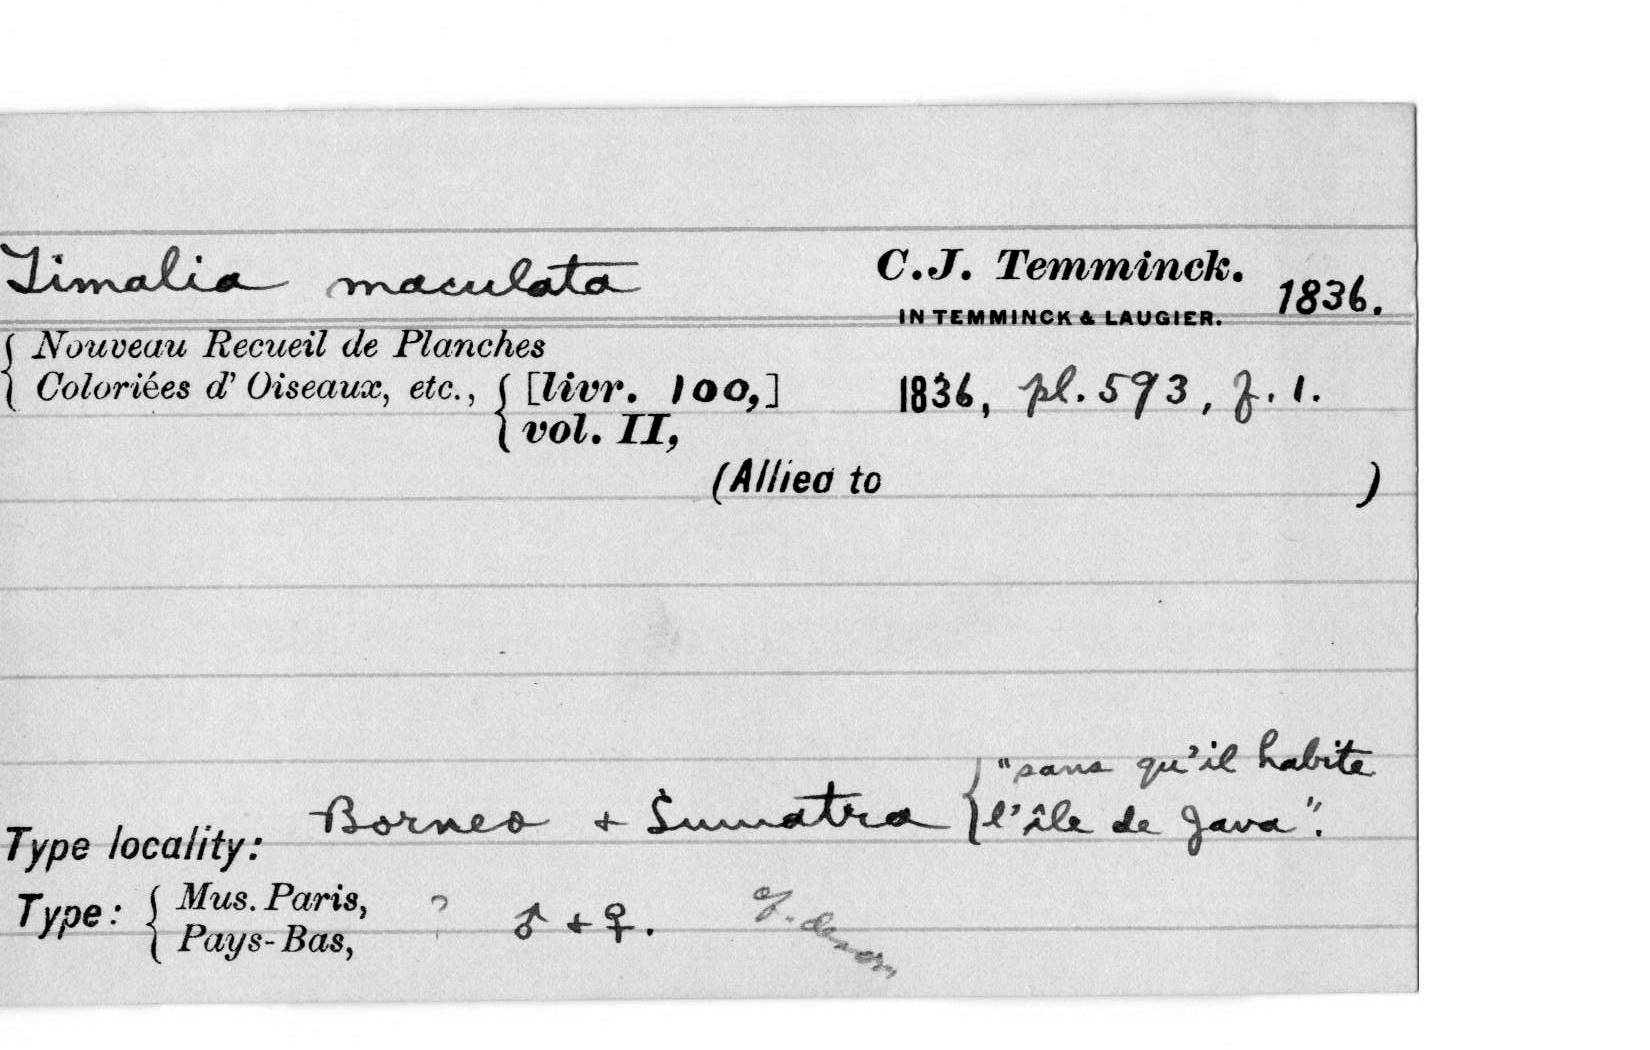 Timalia maculata C.J. Temminck. 1836.
IN TEMMINCK & LAUGIER.
{ Nouveau Recueil de Planches
Coloriées d' Oiseaux, etc., { [livr. 100,] 1836, pl. 593, f. 1.
vol. II,
(Allied to )
"sans qu'il habite
Type locality: Borneo + Sumatra { l'île de Java".
Type: { Mus. Paris, ? ♂ + ♀.
Pays-Bas,